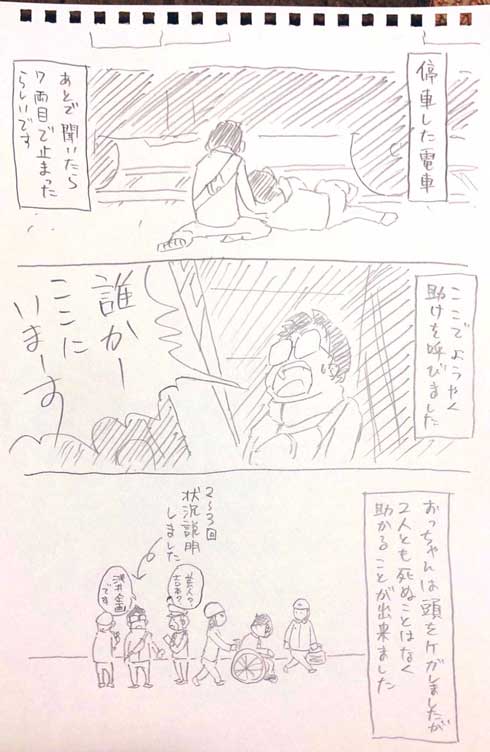 停車した電車
あとで聞いたら
7両目で止まった
らしいです
ここでようやく
助けを呼びました
誰かー
ここに
いまーす
おっちゃんは頭をケガしましたが
2人とも死ぬことはなく
助かることが出来ました
2〜3回
状況説明
しました
芸人?
吉本?
浅井企画
です